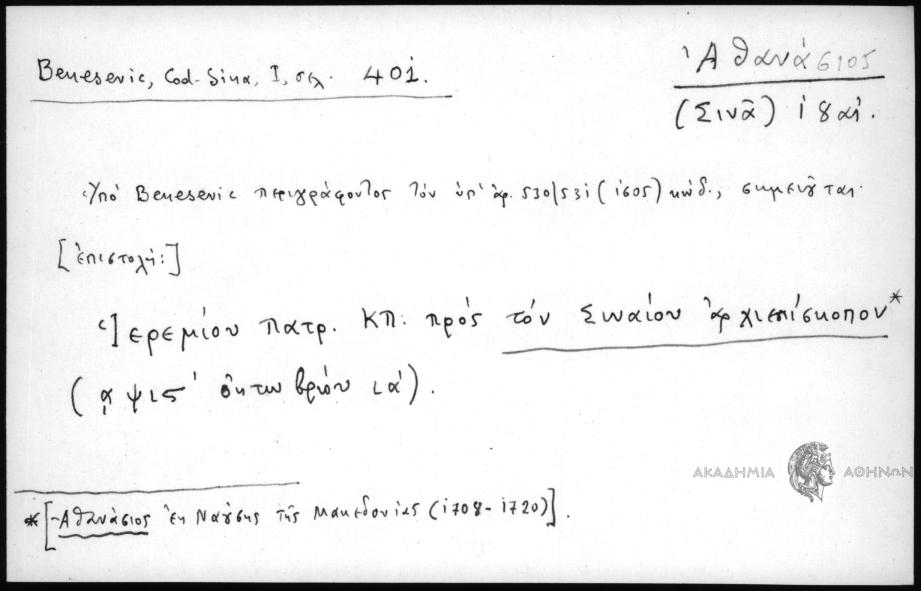 Benesevic, Cod. Sina, I, σελ. 401.
Ἀθανάσιος
(Σινᾶ) 18αι.
Ὑπό Benesevic περιγράφοντος τόν ὑπ' ἀρ. 530/531 (1605) κώδ., σημειοῦται
[ἐπιστολή:]
Ἱερεμίου πατρ. ΚΠ. πρός τόν Σιναίου ἀρχιεπίσκοπον*
(αψις' ὀκτωβρίου ια').
ΑΚΑΔΗΜΙΑ ΑΘΗΝΩΝ
*[Ἀθανάσιος ἐκ Ναούσης τῆς Μακεδονίας (1708-1720)].